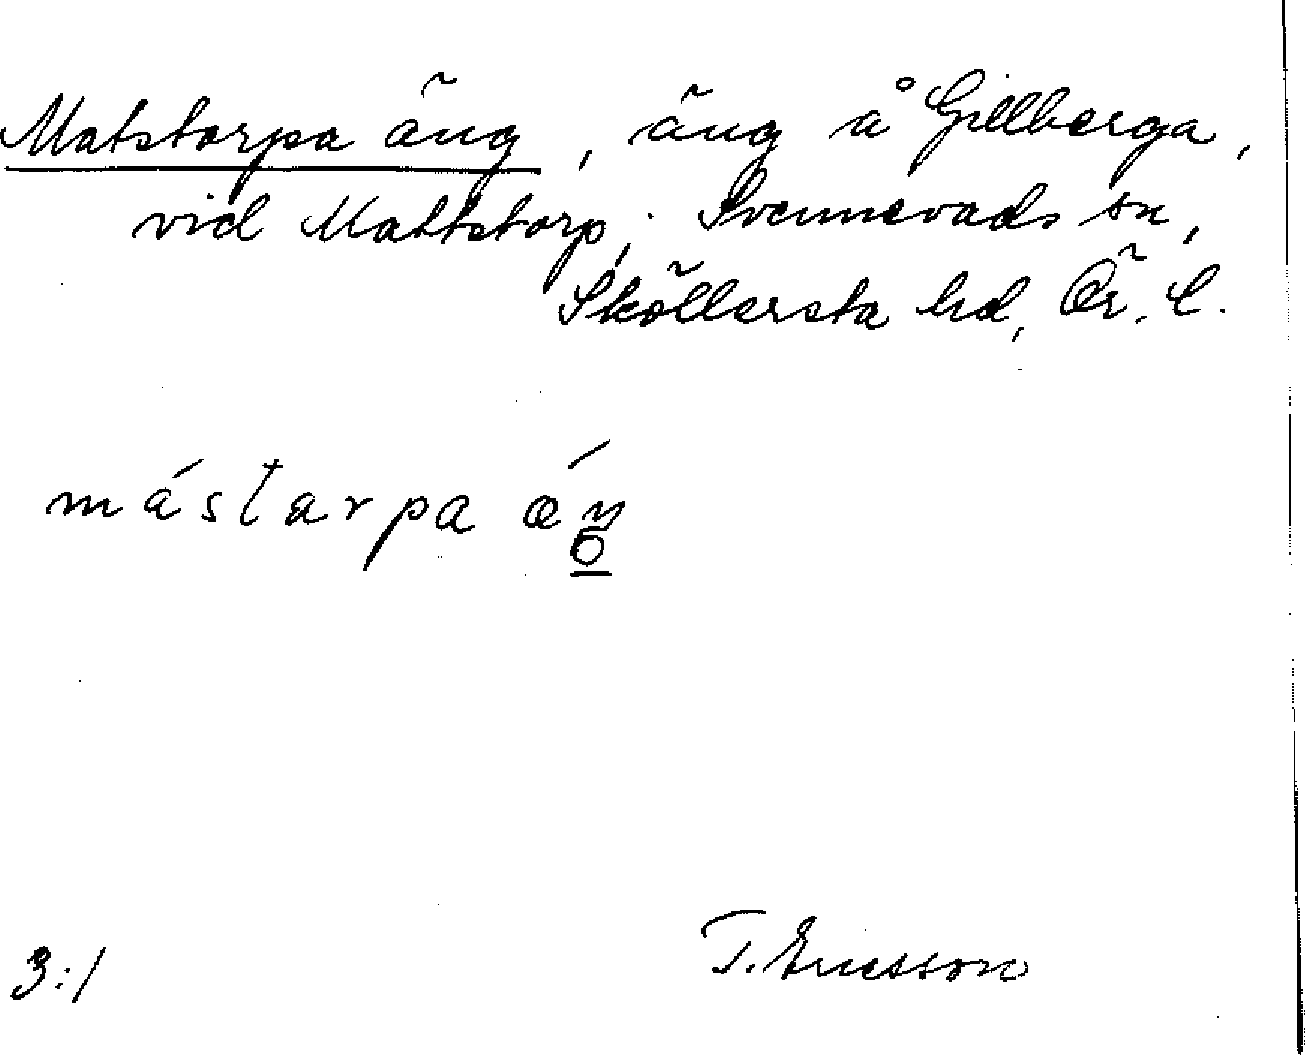 Matstorpa äng, äng å Gillberga,
vid Mattstorp, Svennevads sn,
Sköllersta hd, Ör. l.
mástarpa
3:1
T. Ericsson